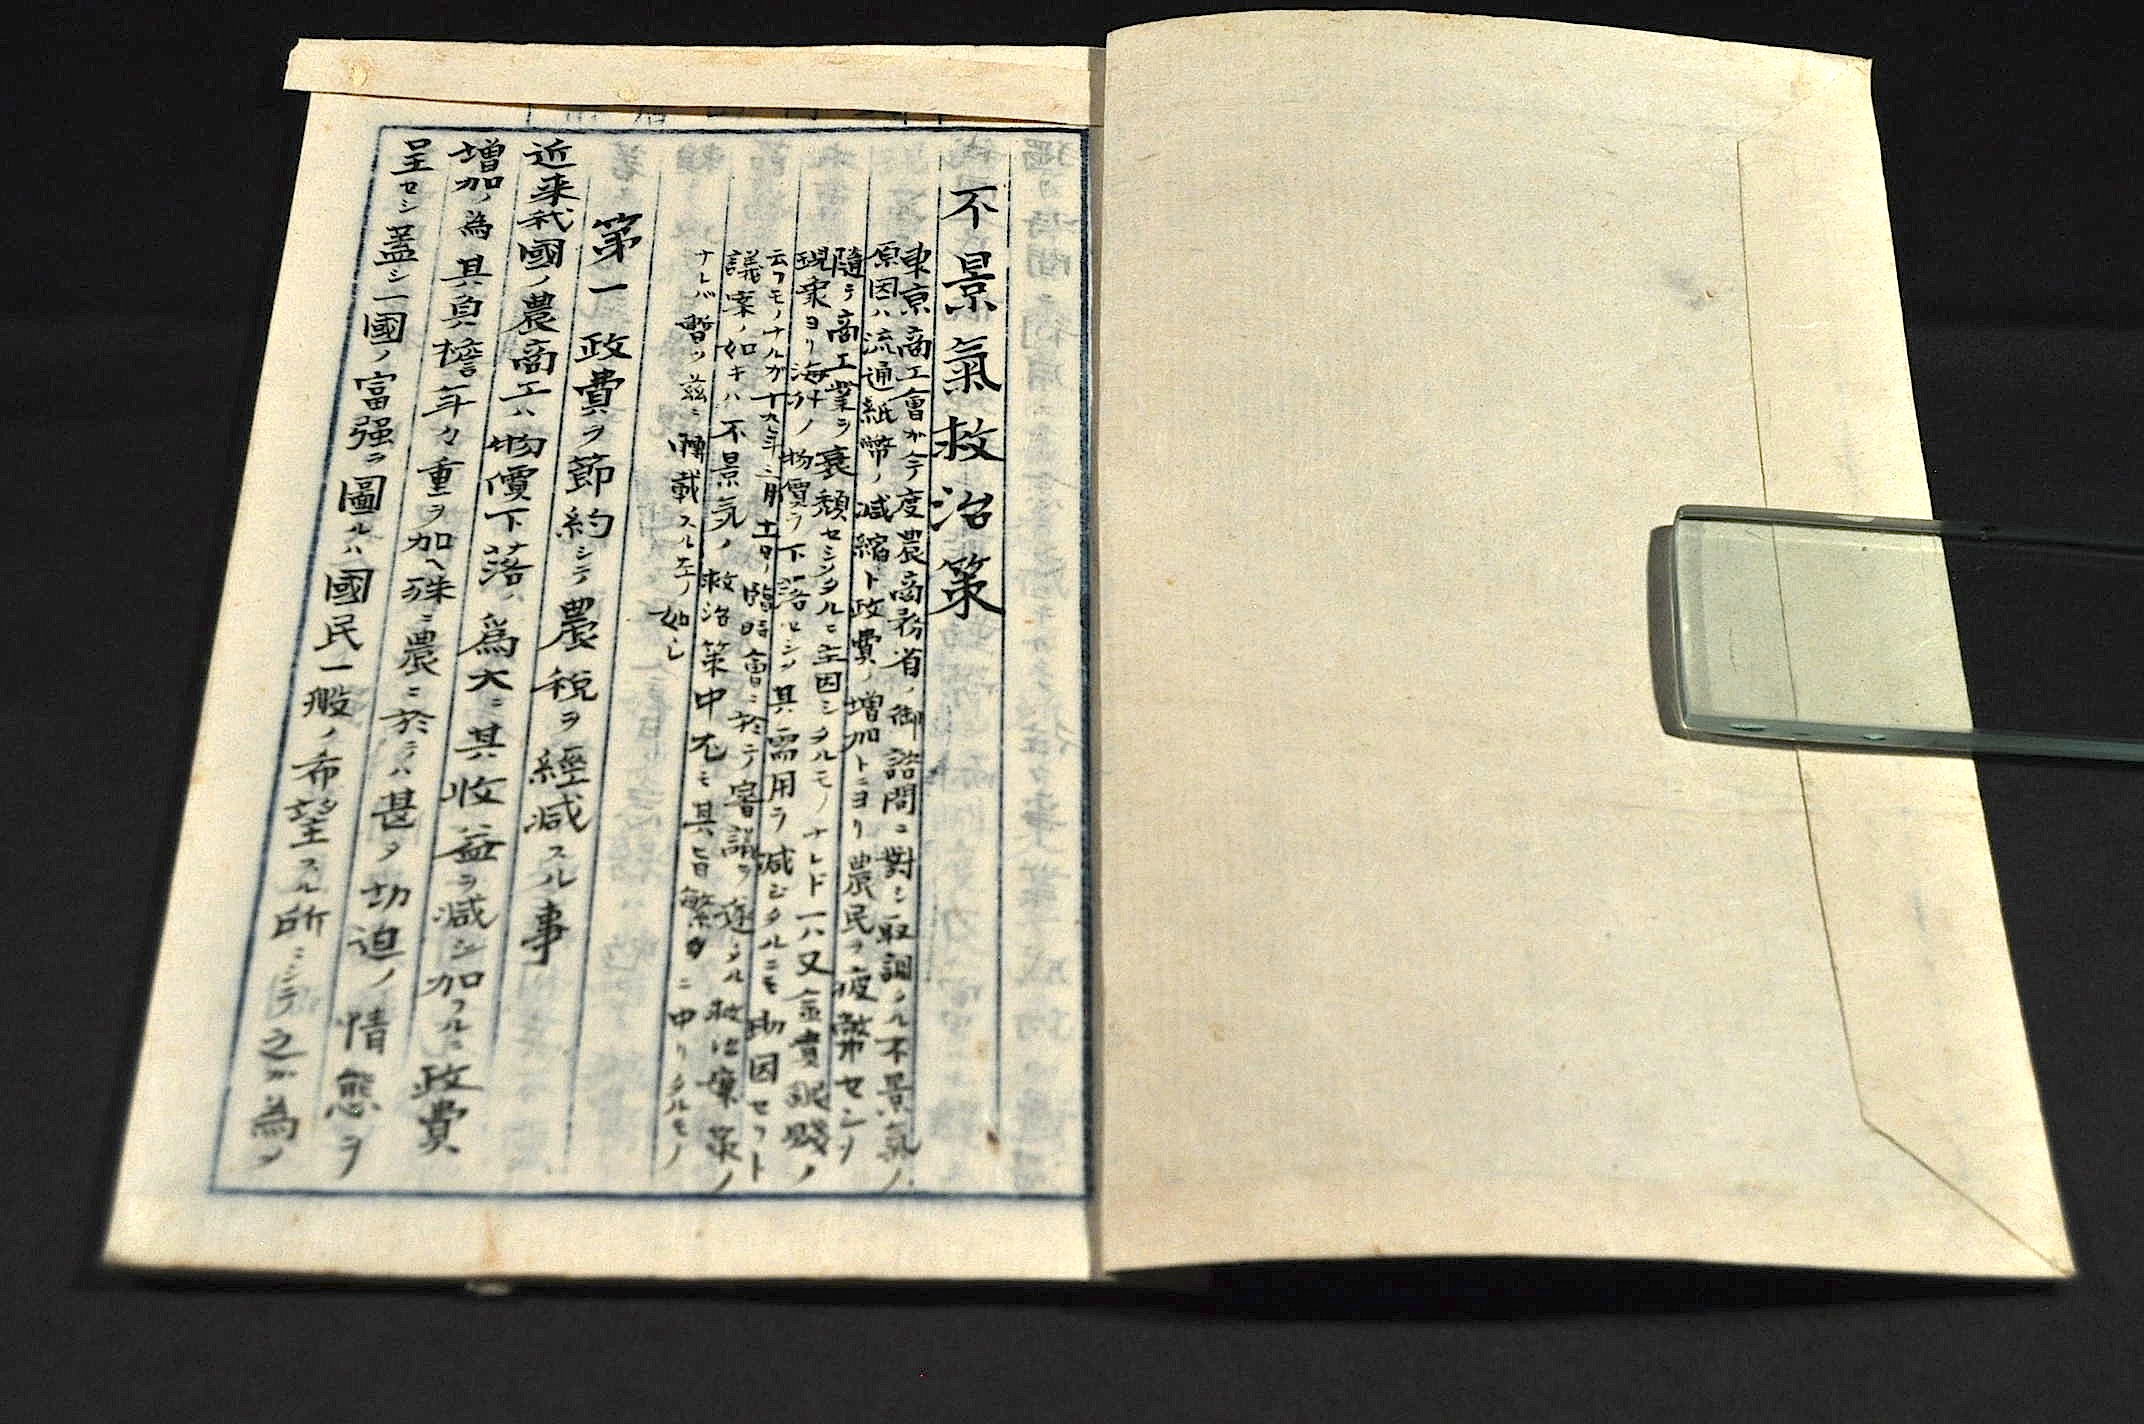 不景氣救治策
東京商工會が今度農商務省ノ御諮問ニ對シ取調タル不景氣ノ
原因ハ流通紙幣ノ減縮ト政費ノ増加トニヨリ農民ヲ疲弊セシメ
隨テ商工業ヲ衰頽セシメタルニ主因シタルモノナレド一ハ又金貴銀賤ノ
現象ヨリ海外ノ物價ヲ下落セシメ其需用ヲ減ジタルニモ
云フモノナルガ十九年二月十一日ノ臨時會ニ於テ審議ヲ遂タル救治
議案ノ如キハ不景気ノ救治策中尤モ其旨繁
ナレバ暫ク茲ニ轉載スル左ノ如し
第一 政費ヲ節約シテ農税ヲ輕減スル事
近来我國ノ農商工ハ物價下落ノ爲大ニ其收益ヲ減シ加フルニ政費
増加ノ為其負擔年々重ヲ加ヘ殊ニ農ニ於テハ甚タ切迫ノ情態ヲ
呈セシ蓋シ一國ノ富强ヲ圖ルハ國民一般ノ希望スル所ニシテ之が為メ